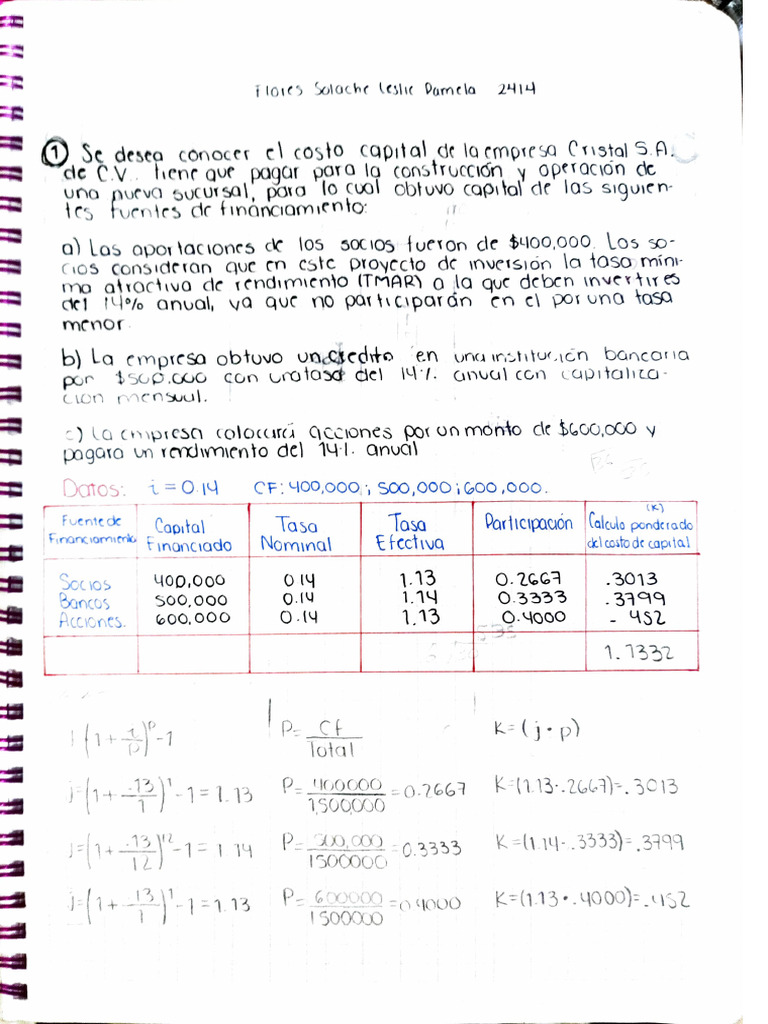 Flores Solache Leslie Pamela 2414
① Se desea conocer el costo capital de la empresa Cristal S.A.
de C.V. tiene que pagar para la construcción y operación de
una nueva sucursal, para lo cual obtuvo capital de las siguien-
tes fuentes de financiamiento:
a) Las aportaciones de los socios fueron de $400,000. Los so-
cios consideran que en este proyecto de inversión la tasa míni-
ma atractiva de rendimiento (TMAR) a la que deben invertir es
del 14% anual, ya que no participarán en el por una tasa
menor.
b) La empresa obtuvo un credito en una institución bancaria
por $500.000 con una tasa del 14% anual con capitaliza-
ción mensual.
c) La empresa colocará acciones por un monto de $600,000 y
pagara un rendimiento del 14% anual
Datos: i = 0.14 CF: 400,000; 500,000; 600,000.
Fuente de Financiamiento | Capital Financiado | Tasa Nominal | Tasa Efectiva | Participación | (K) Calculo ponderado del costo de capital
Socios 400,000 0.14 1.13 0.2667 .3013
Bancos 500,000 0.14 1.14 0.3333 .3799
Acciones. 600,000 0.14 1.13 0.4000 - 452
1.7332
(1+i/p)^p-1 P= Cf/Total K=(j·p)
j=(1+.13/1)^1-1=1.13 P=400000/1,500,000=0.2667 K=(1.13·.2667)=.3013
j=(1+.13/12)^12-1=1.14 P=500,000/1500000=0.3333 K=(1.14·.3333)=.3799
j=(1+.13/1)^1-1=1.13 P=600000/1500000=0.4000 K=(1.13·.4000)=.452